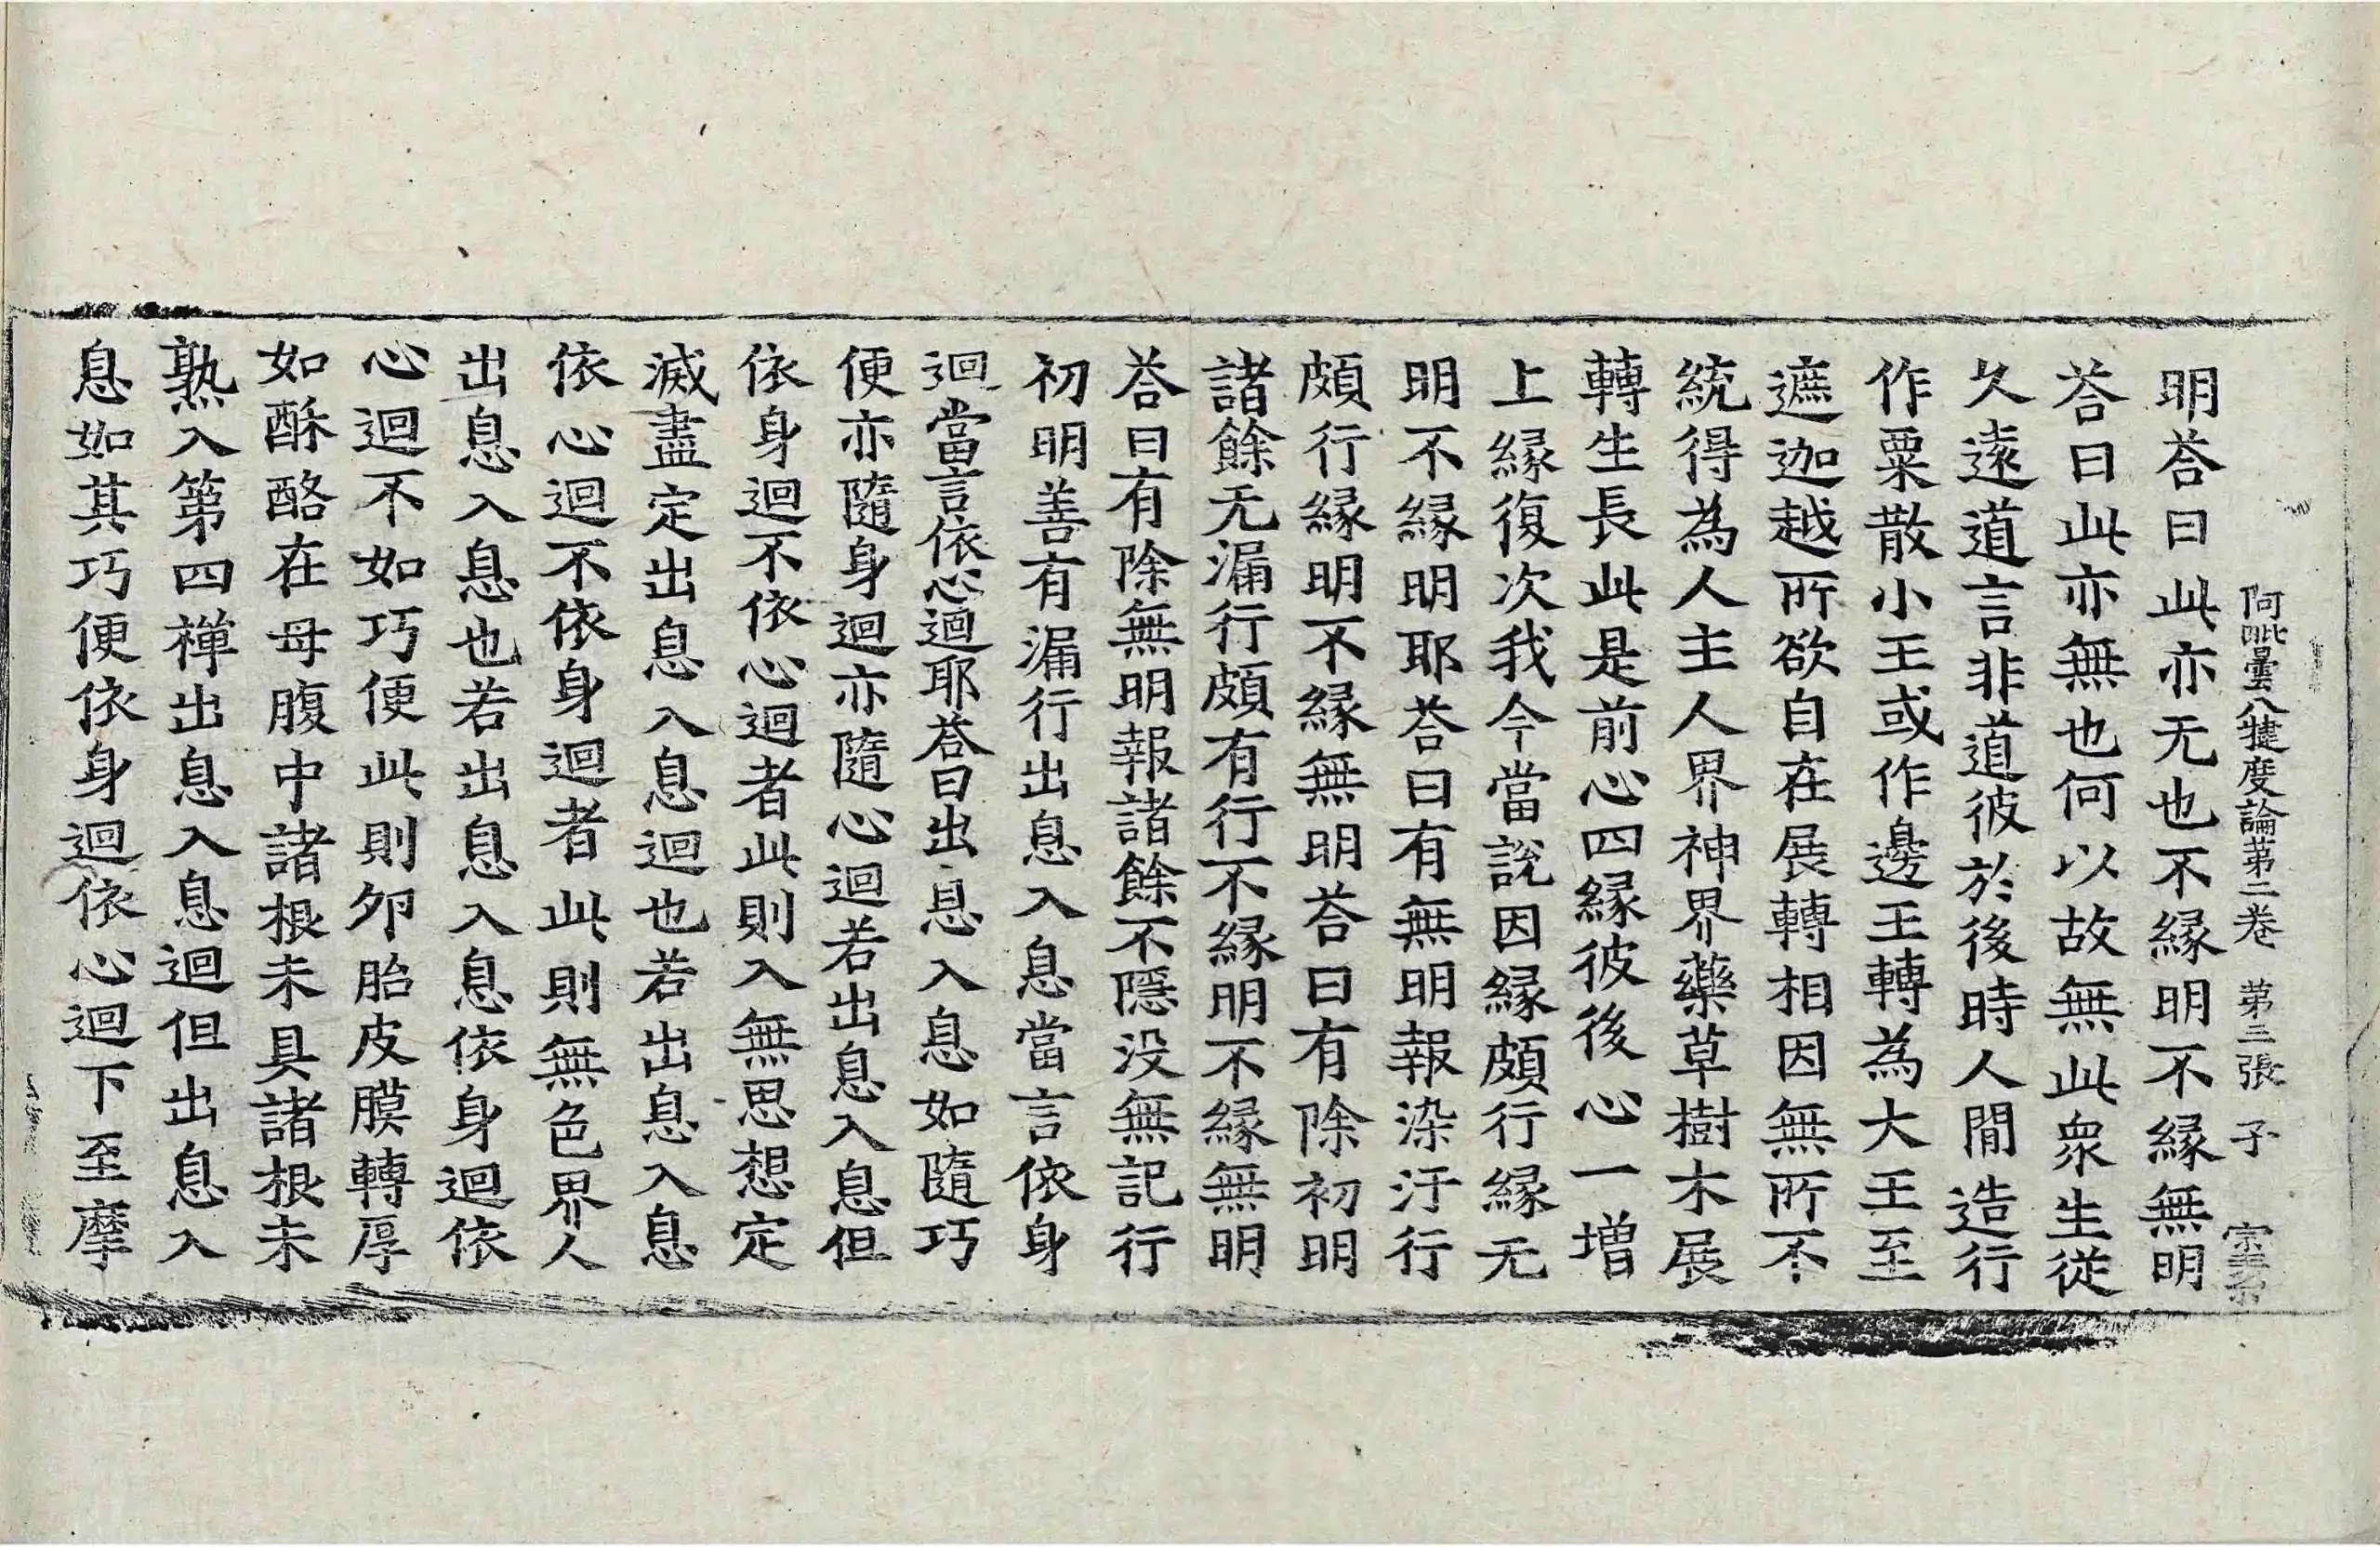 阿毗曇八犍度論第二卷 第三張 子
明荅曰此亦无也不緣明不緣無明
荅曰此亦無也何以故無此衆生從
久遠道言非道彼於後時人間造行
作粟散小王或作邊王轉為大王至
遮迦越所欲自在展轉相因無所不
統得為人主人界神界藥草樹木展
轉生長此是前心四緣彼後心一增
上緣復次我今當說因緣頗行緣无
明不緣明耶荅曰有無明報染汙行
頗行緣明不緣無明荅曰有除初明
諸餘无漏行頗有行不緣明不緣無明
荅曰有除無明報諸餘不隱没無記行
初明善有漏行出息入息當言依身
迴當言依心迴耶荅曰出息入息如隨巧
便亦隨身迴亦隨心迴若出息入息但
依身迴不依心迴者此則入無思想定
滅盡定出息入息迴也若出息入息
依心迴不依身迴者此則無色界人
出息入息也若出息入息依身迴依
心迴不如巧便此則夘胎皮膜轉厚
如酥酪在母腹中諸根未具諸根未
熟入第四禪出息入息迴但出息入
息如其巧便依身迴依心迴下至摩